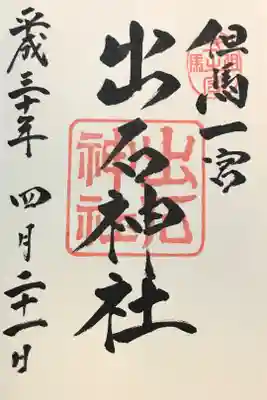 但馬一宮
出石神社
平成三十年 四月二十一日
出石神社